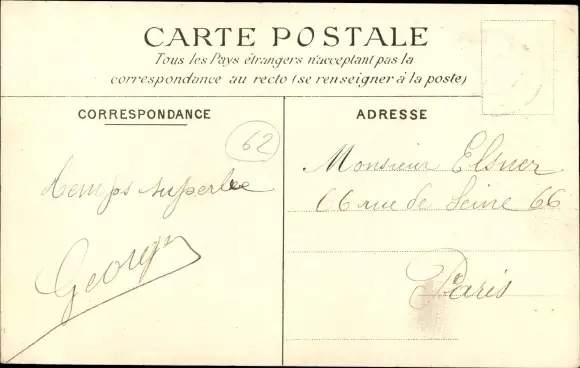 CARTE POSTALE
Tous les Pays étrangers n'acceptant pas la
correspondance au recto (se renseigner à la poste)
CORRESPONDANCE
62
temps superbe
Georges
ADRESSE
Monsieur Elsner
66 rue de Seine 66
Paris